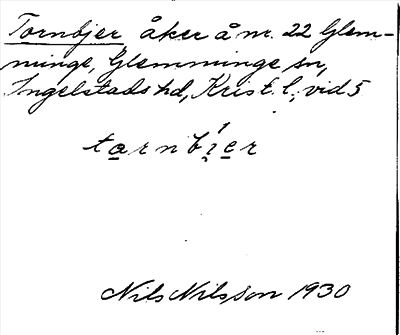 Tornbjer åker å nr. 22 Glem-
minge, Glemminge sn,
Ingelstads hd, Krist. l., vid 5
tarnbier
Nils Nilsson 1930